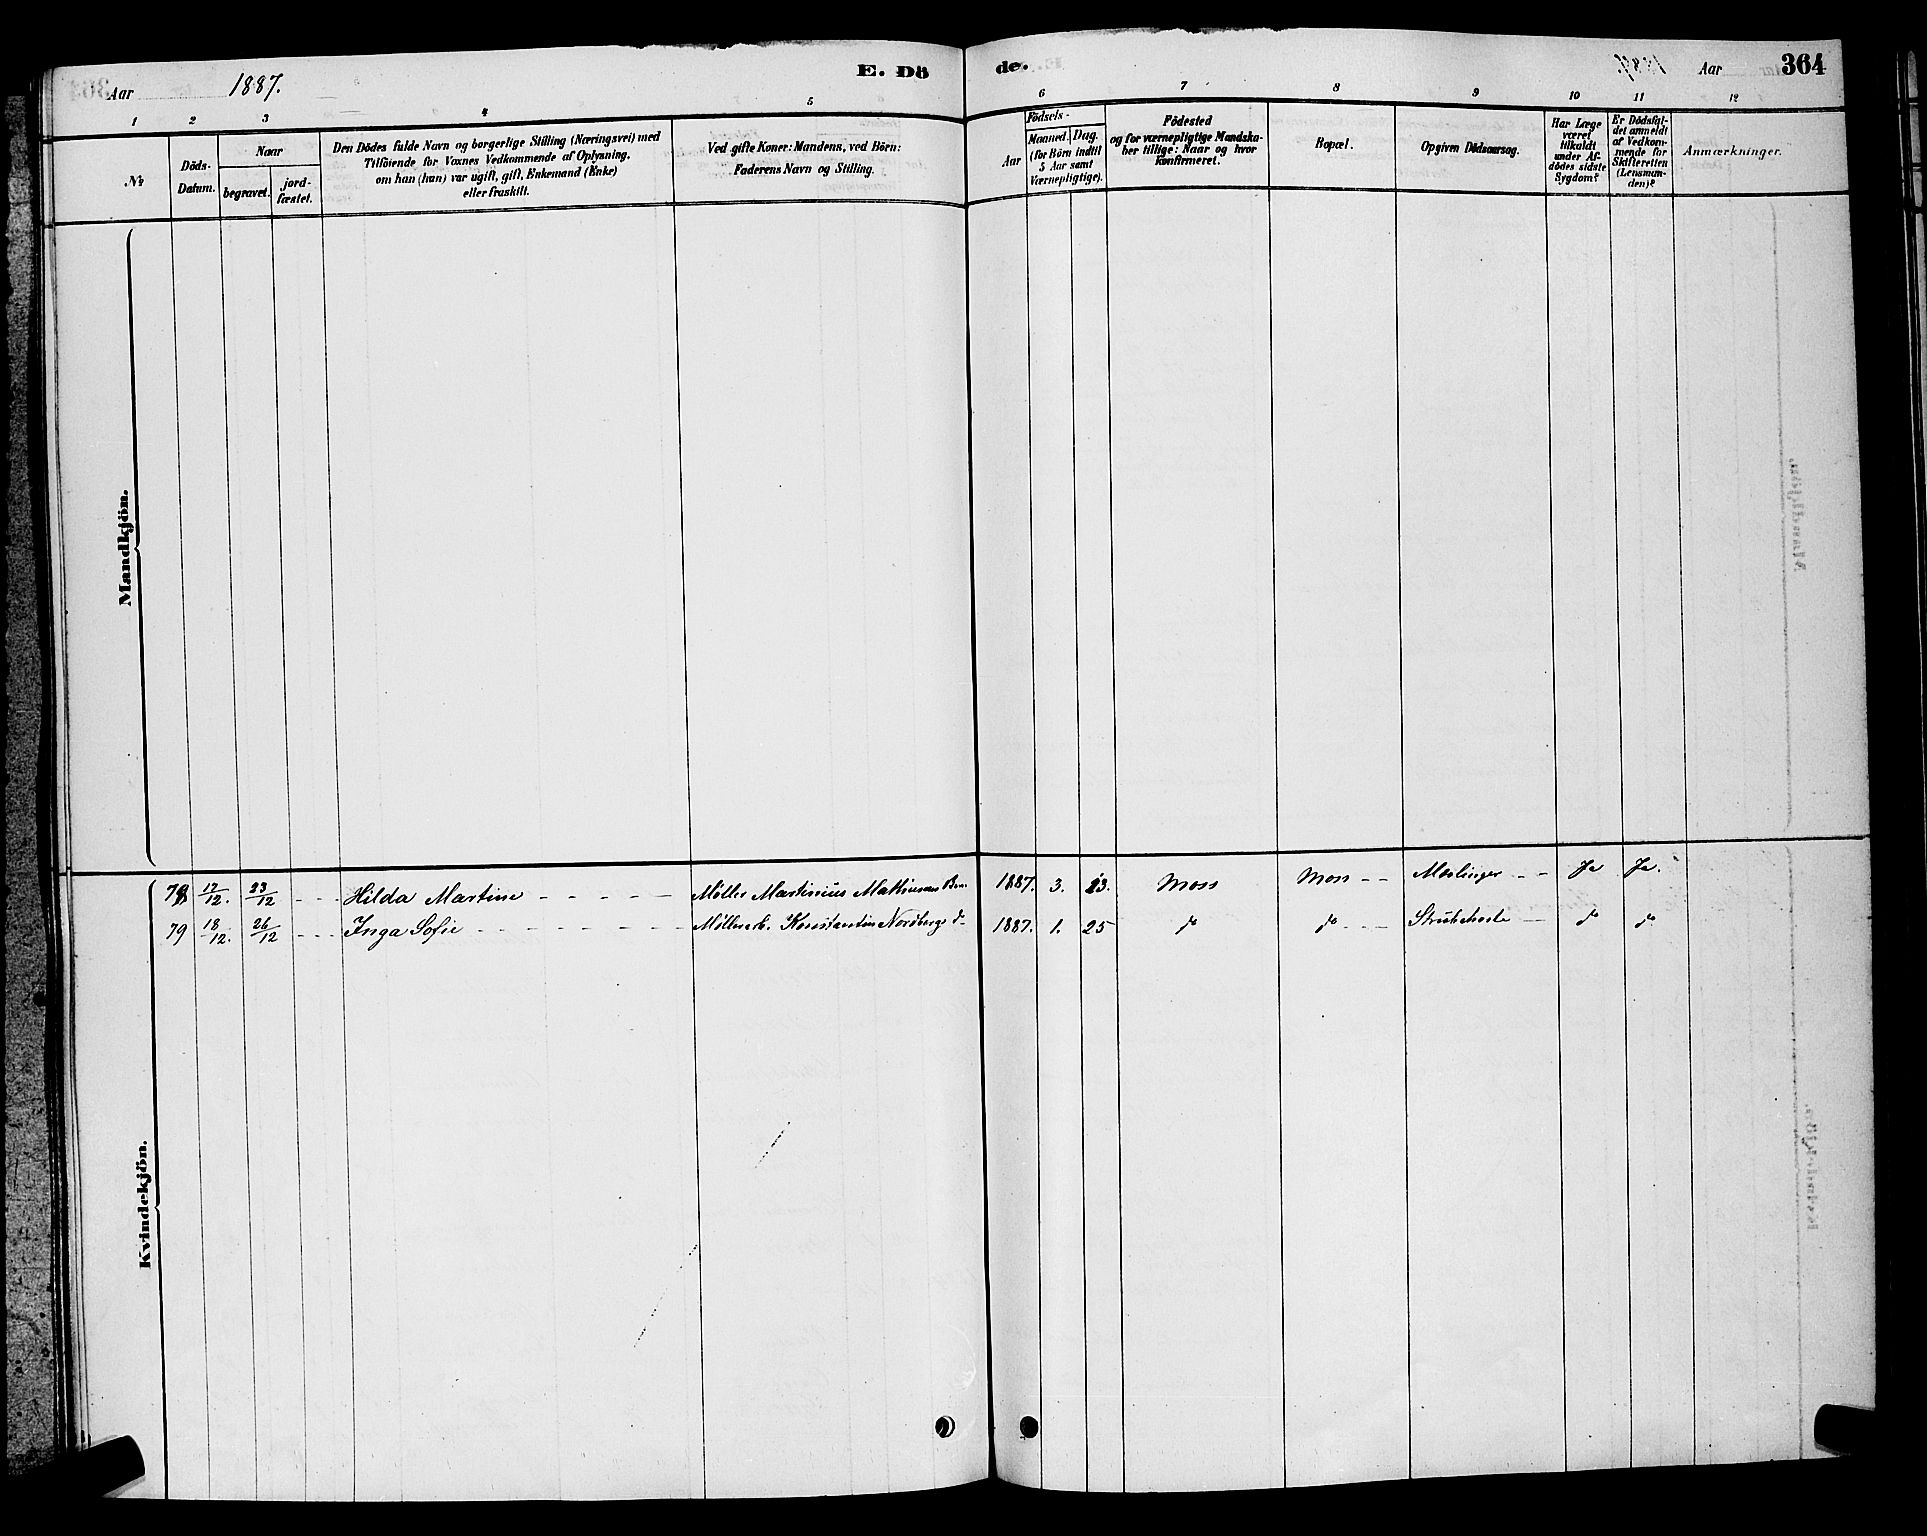 Aar 1887. E. Dö de. Aar 364
1 2 3 4 5 6 7 8 9 10 11 12
№
Döds-
Datum.
Naar
begravet.
jord-
fæstet.
Den Dödes fulde Navn og borgerlige Stilling (Næringsvei) med
Tilföiende for Voxnes Vedkommende af Oplysning,
om han (hun) var ugift, gift, Enkemand (Enke)
eller fraskilt.
Ved gifte Koner: Mandens, ved Börn:
Faderens Navn og Stilling.
Födsels-
Aar
Maaned. Dag.
(for Börn indtil
5 Aar samt
Værnepligtige).
Födested
og for værnepligtige Mandska-
ber tillige: Naar og hvor
Konfirmeret.
Bopæl.
Opgiven Dödsaarsag.
Har Læge
været
tilkaldt
under Af-
dödes sidste
Sygdom?
Er Dödsfal-
det anmeldt
af Vedkom-
mende for
Skifteretten
(Lensman-
den)?
Anmærkninger.
Mandkjön.
Kvindekjön.
78 12/12. 23/12 - - - Hilda Martine - - - - - Møller Martinius Barn 1887. 3. 13. Moss Moss - - Meslinger - - Ja Ja.
79 18/12. 26/12 - - - Inga Sofie - - - - - - - Møllerarb. Konstantin Nordbergs do 1887. 1. 25 do do - - - Strubehoste - do do